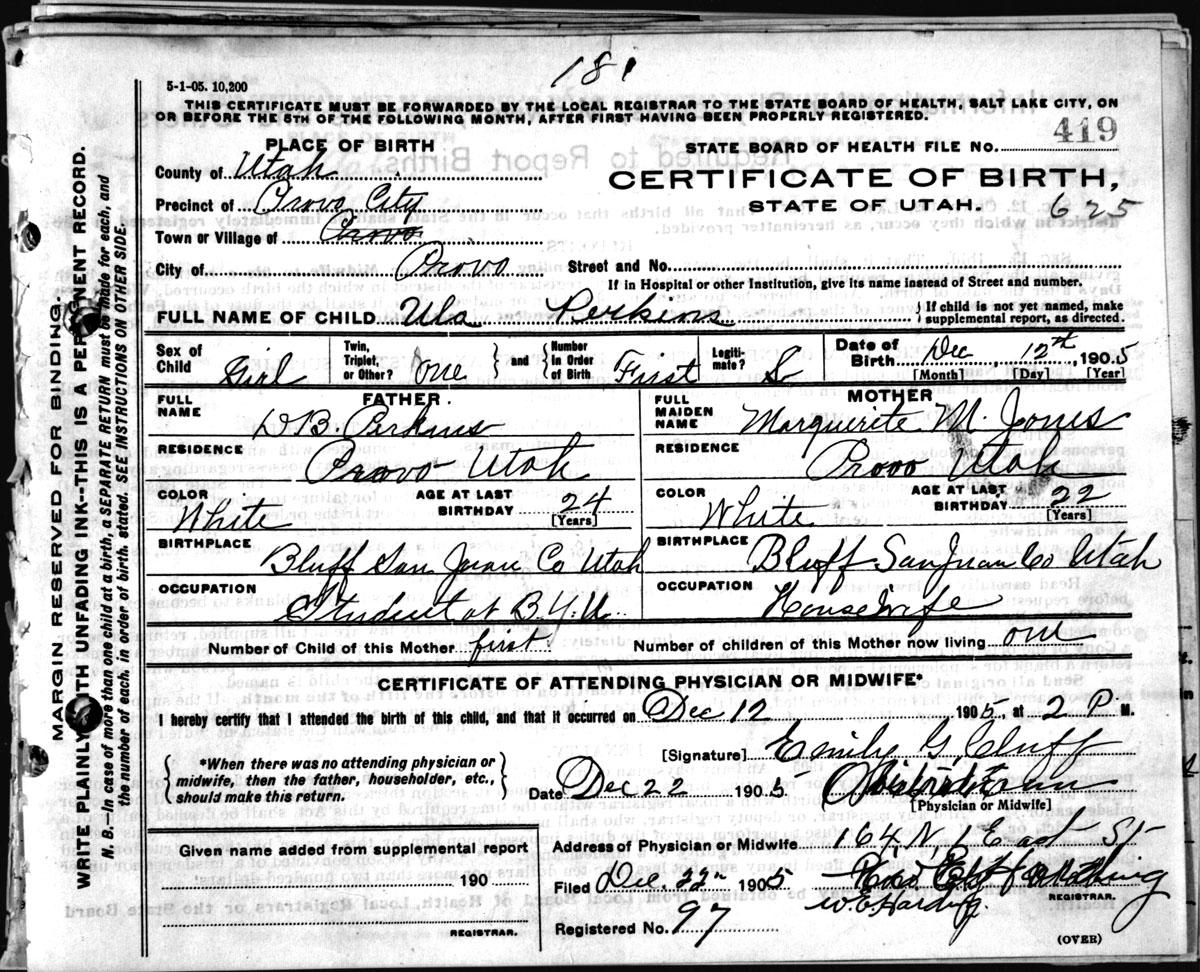 181
5-1-05. 10,200
THIS CERTIFICATE MUST BE FORWARDED BY THE LOCAL REGISTRAR TO THE STATE BOARD OF HEALTH, SALT LAKE CITY, ON
OR BEFORE THE 5TH OF THE FOLLOWING MONTH, AFTER FIRST HAVING BEEN PROPERLY REGISTERED.
PLACE OF BIRTH
STATE BOARD OF HEALTH FILE NO. 419
County of Utah
CERTIFICATE OF BIRTH,
Precinct of Provo City
STATE OF UTAH. 625
Town or Village of Provo
City of Provo Street and No.
If in Hospital or other Institution, give its name instead of Street and number.
FULL NAME OF CHILD Ula Perkins { If child is not yet named, make supplemental report, as directed.
Sex of Child Girl Twin, Triplet, or Other? One } and { Number in Order of Birth First Legiti- mate? Date of Birth Dec 12th, 1905
[Month] [Day] [Year]
FATHER. MOTHER
FULL NAME D B. Perkins FULL MAIDEN NAME Marguerite M. Jones
RESIDENCE Provo Utah RESIDENCE Provo Utah
COLOR White AGE AT LAST BIRTHDAY 24 [Years] COLOR White AGE AT LAST BIRTHDAY 22 [Years]
BIRTHPLACE Bluff San Juan Co Utah BIRTHPLACE Bluff San Juan Co Utah
OCCUPATION Student at B.Y.U. OCCUPATION Housewife
Number of Child of this Mother first Number of children of this Mother now living one
CERTIFICATE OF ATTENDING PHYSICIAN OR MIDWIFE*
I hereby certify that I attended the birth of this child, and that it occurred on Dec 12 1905, at 2 P M.
[Signature] Emily G. Cluff
{ *When there was no attending physician or midwife, then the father, householder, etc., should make this return. }
Date Dec 22 1905
[Physician or Midwife]
Given name added from supplemental report
Address of Physician or Midwife 164 N. East St
190
Filed Dec. 22 1905
W E Harding.
REGISTRAR.
Registered No. 97
REGISTRAR.
(OVER)
MARGIN RESERVED FOR BINDING.
WRITE PLAINLY WITH UNFADING INK--THIS IS A PERMANENT RECORD.
N. B.—In case of more than one child at a birth, a SEPARATE RETURN must be made for each, and
the number of each, in order of birth, stated. SEE INSTRUCTIONS ON OTHER SIDE.